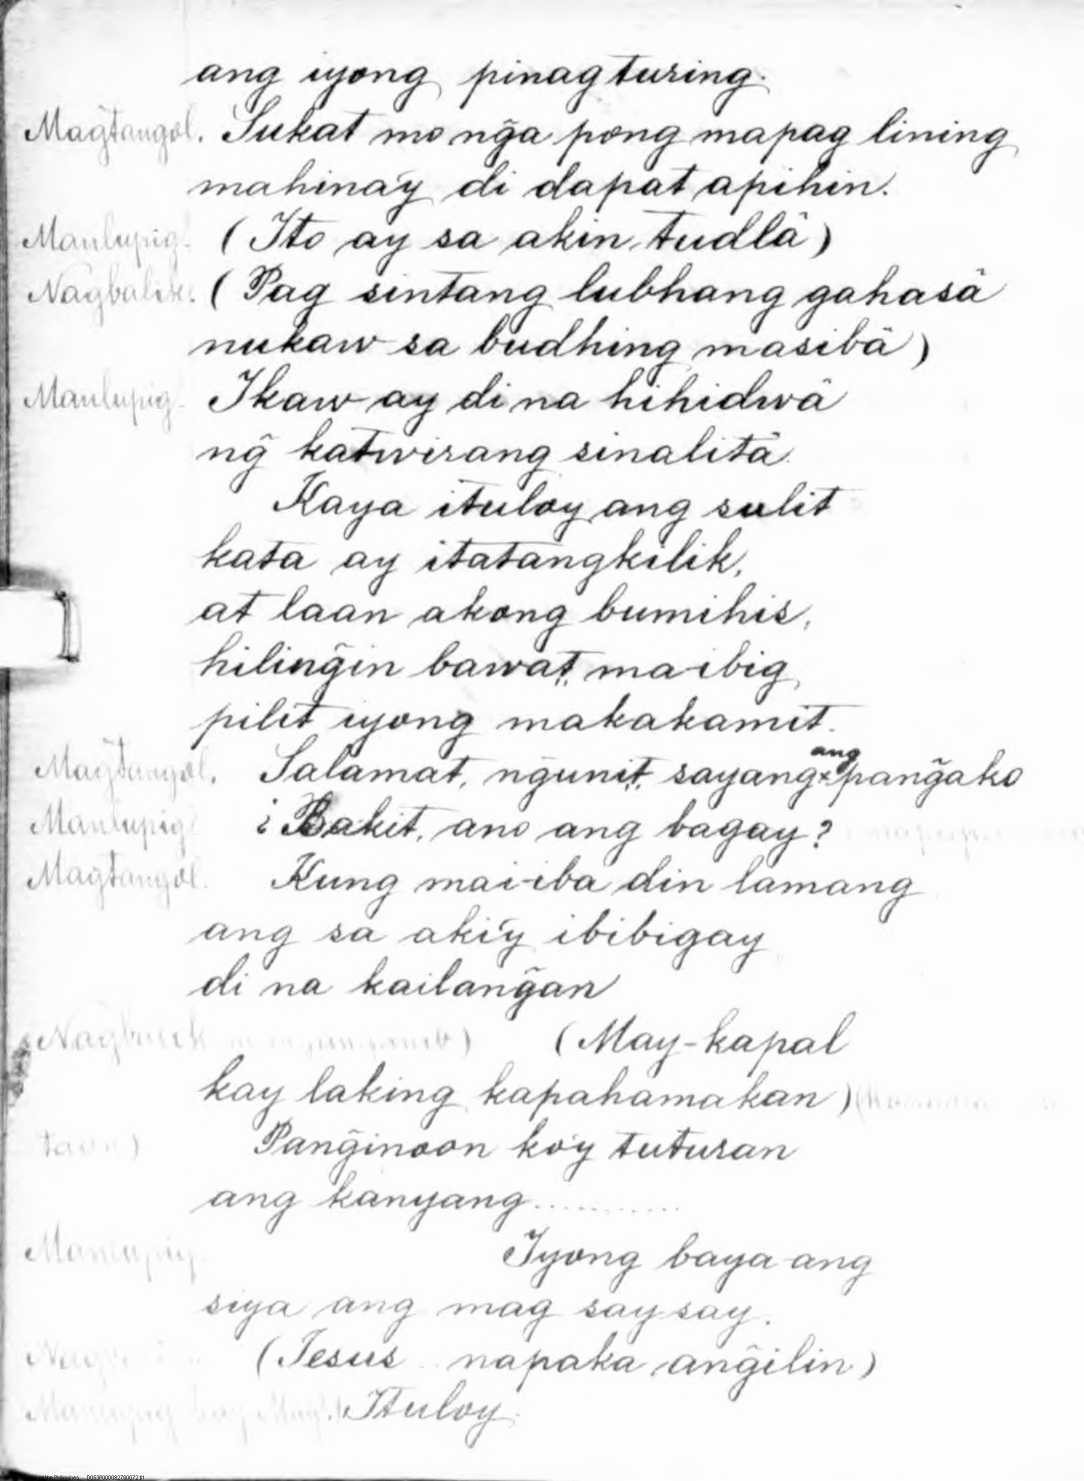 ang iyong pinagturing.
Magtangol. Sukat mo ng̃a pong mapag lining
mahina'y di dapat apihin.
Manlupig. (Ito ay sa akin tudlâ)
Nagbalik. (Pag sintang lubhang gahasâ
nukaw sa budhing masibâ)
Manlupig. Ikaw ay di na hihidwâ
ng̃ katwirang sinalitâ.
Kaya ituloy ang sulit
kata ay itatangkilik,
at laan akong bumihis,
hiling̃in bawat, ma-ibig
pilit iyong makakamit.
Magtangol. Salamat, ng̃unit, sayang × ang pang̃ako
Manlupig ¿Bakit, ano ang bagay?
Magtangol. Kung mai-iba din lamang
ang sa aki'y ibibigay
di na kailang̃an
(May-kapal
kay laking kapahamakan)
Pang̃inoon ko'y tuturan
ang kanyang............
Manlupig. Iyong baya-ang
siya ang mag saysay.
(Jesus napaka ang̃ilin)
Manlupig kay Ituloy.